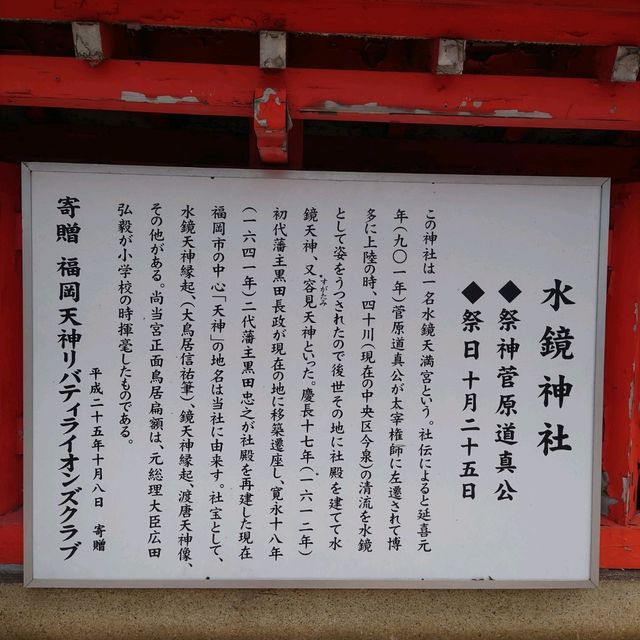 水鏡神社
◆祭神菅原道真公
◆祭日十月二十五日
この神社は一名水鏡天満宮という。社伝によると延喜元
年(九〇一年)菅原道真公が太宰権師に左遷されて博
多に上陸の時、四十川(現在の中央区今泉)の清流を水鏡
として姿をうつされたので後世その地に社殿を建てて水
鏡天神、又容見天神といった。慶長十七年(一六一二年)
すがたみ
初代藩主黒田長政が現在の地に移築遷座し、寛永十八年
(一六四一年)二代藩主黒田忠之が社殿を再建した現在
福岡市の中心「天神」の地名は当社に由来す。社宝として、
水鏡天神縁起、(大鳥居信祐筆)鏡天神縁起、渡唐天神像、
その他がある。尚当宮正面鳥居扁額は、元総理大臣広田
弘毅が小学校の時揮毫したものである。
平成二十五年十月八日 寄贈
寄贈 福岡天神リバティライオンズクラブ